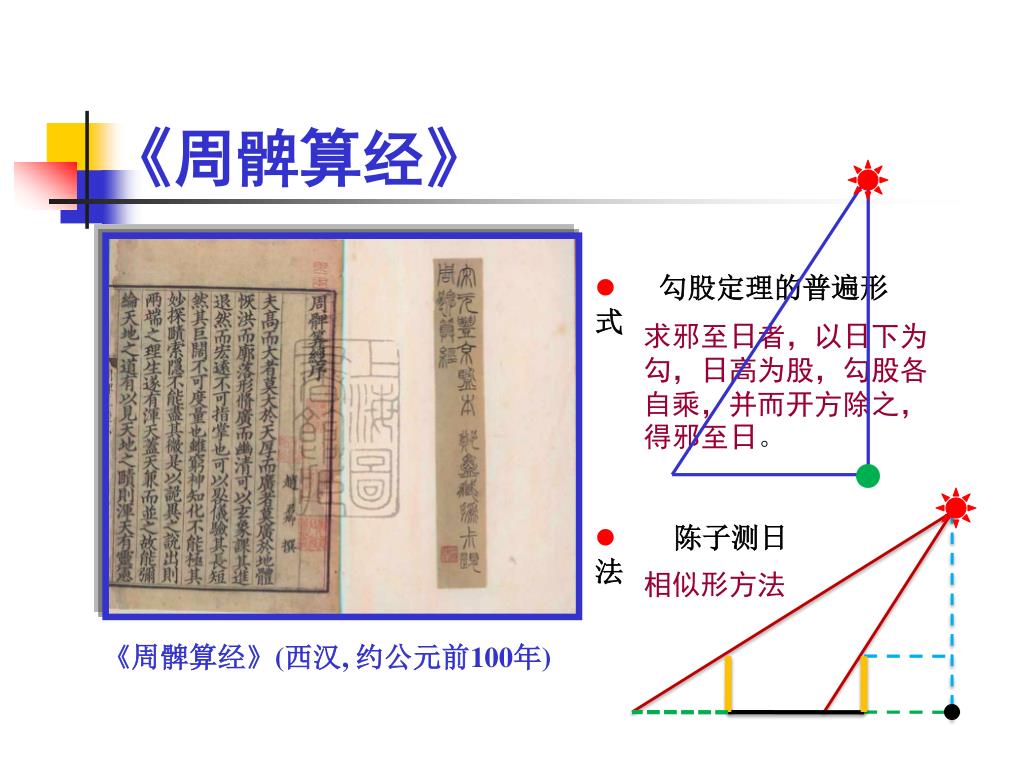 《周髀算经》
周髀算經序
趙 撰
夫高而大者莫大於天厚而廣者莫廣於地體
恢洪而廓落形脩廣而幽清可以玄象課其進
退然而宏遠不可指掌也可以晷儀驗其長短
然其巨闊不可度量也雖窮神知化不能極其
妙探賾索隱不能盡其微是以詭異之說出則
兩端之理生遂有渾天蓋天兼而並之故能彌
綸天地之道有以見天地之賾則渾天有靈憲
上海圖
宋元豐京監本
周髀算經
《周髀算经》(西汉, 约公元前100年)
● 勾股定理的普遍形
式
求邪至日者，以日下为
勾，日高为股，勾股各
自乘，并而开方除之，
得邪至日。
● 陈子测日
法
相似形方法